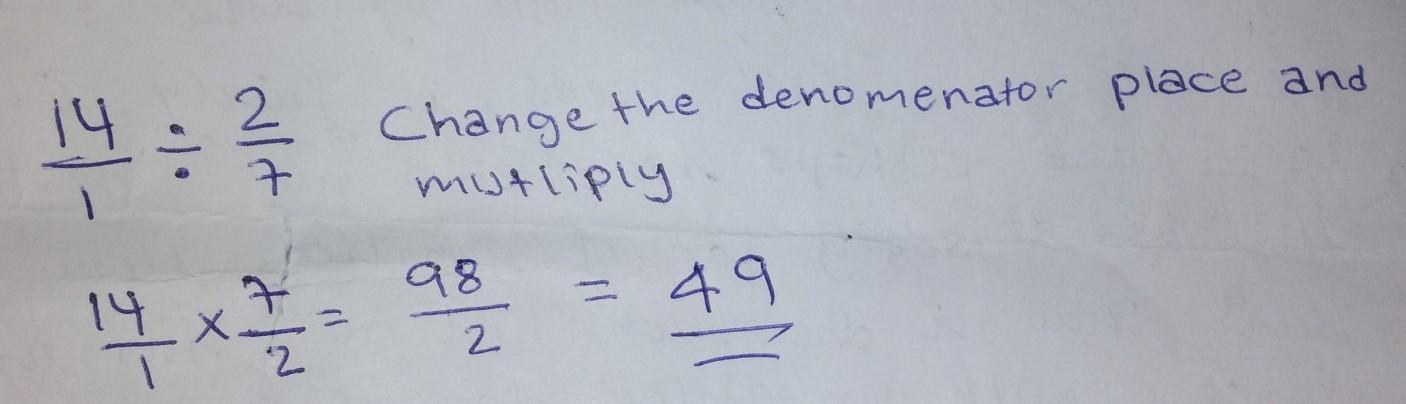 14/1 ÷ 2/7 Change the denomenator place and
mutliply
14/1 x 7/2 = 98/2 = 49